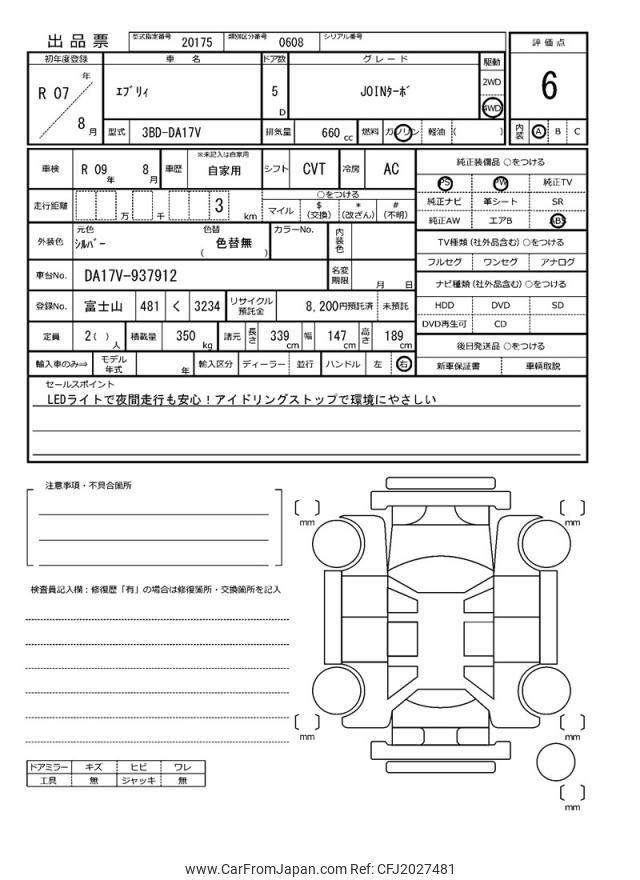 出品票 型式指定番号 20175 類別区分番号 0608 シリアル番号
評価点
6
初年度登録 車名 ドア数 グレード 駆動
R 07 年 8 月
ｴﾌﾞﾘｨ 5 D JOINﾀｰﾎﾞ 2WD
4WD
型式 3BD-DA17V 排気量 660 cc 燃料 ガソリン 軽油 ( )
内装 A B C
車検 R 09 年 8 月 車歴 ※未記入は自家用 自家用 シフト CVT 冷房 AC
走行距離 万 千 3 km
○をつける
マイル $(交換) *(改ざん) #(不明)
外装色 元色 ｼﾙﾊﾞｰ 色替 ( 色替無 ) カラーNo. 内装色
車台No. DA17V-937912 名変期限 月 日
登録No. 富士山 481 く 3234 リサイクル預託金 8,200円預託済 未預託
定員 2( ) 人 積載量 350 kg 諸元 長さ 339 cm 幅 147 cm 高さ 189 cm
輸入車のみ⇒ モデル年式 年 輸入区分 ディーラー 並行 ハンドル 左 右
純正装備品 ○をつける
PS PW 純正TV
純正ナビ 革シート SR
純正AW エアB ABS
TV種類 (社外品含む) ○をつける
フルセグ ワンセグ アナログ
ナビ種類 (社外品含む) ○をつける
HDD DVD SD
DVD再生可 CD
後日発送品 ○をつける
新車保証書 車輌取説
セールスポイント
LEDライトで夜間走行も安心！アイドリングストップで環境にやさしい
注意事項・不具合箇所
検査員記入欄：修復歴「有」の場合は修復箇所・交換箇所を記入
ドアミラー キズ ヒビ ワレ
工具 無 ジャッキ 無
[ ] mm
[ ] mm
[ ] mm
[ ] mm
[ ] mm
www.CarFromJapan.com Ref: CFJ2027481